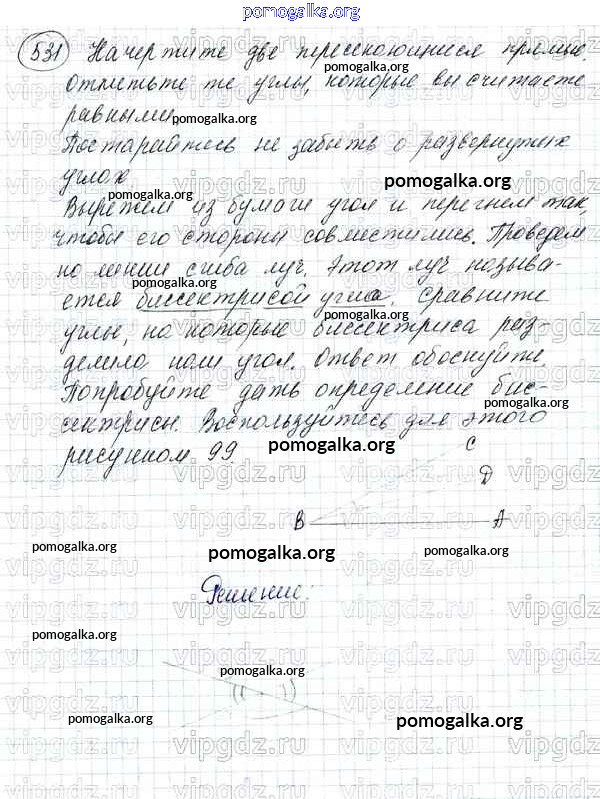 pomogalka.org
531 Начертите две пересекающиеся прямые.
Отметьте те углы, которые вы считаете
равными. pomogalka.org
Постарайтесь не забыть о развернутых
углах pomogalka.org
pomogalka.org
Вырежем из бумаги угол и перегнем так,
чтобы его стороны совместились. Проведем
по линии сгиба луч. Этот луч называ-
ется биссектрисой угла. Сравните
pomogalka.org
углы, на которые биссектриса раз-
делила наш угол. Ответ обоснуйте.
Попробуйте дать определение бис-
pomogalka.org
сектрисы. Воспользуйтесь для этого
рисунком 99 pomogalka.org
C
D
B A
pomogalka.org pomogalka.org pomogalka.org
Решение:
pomogalka.org
pomogalka.org
pomogalka.org pomogalka.org